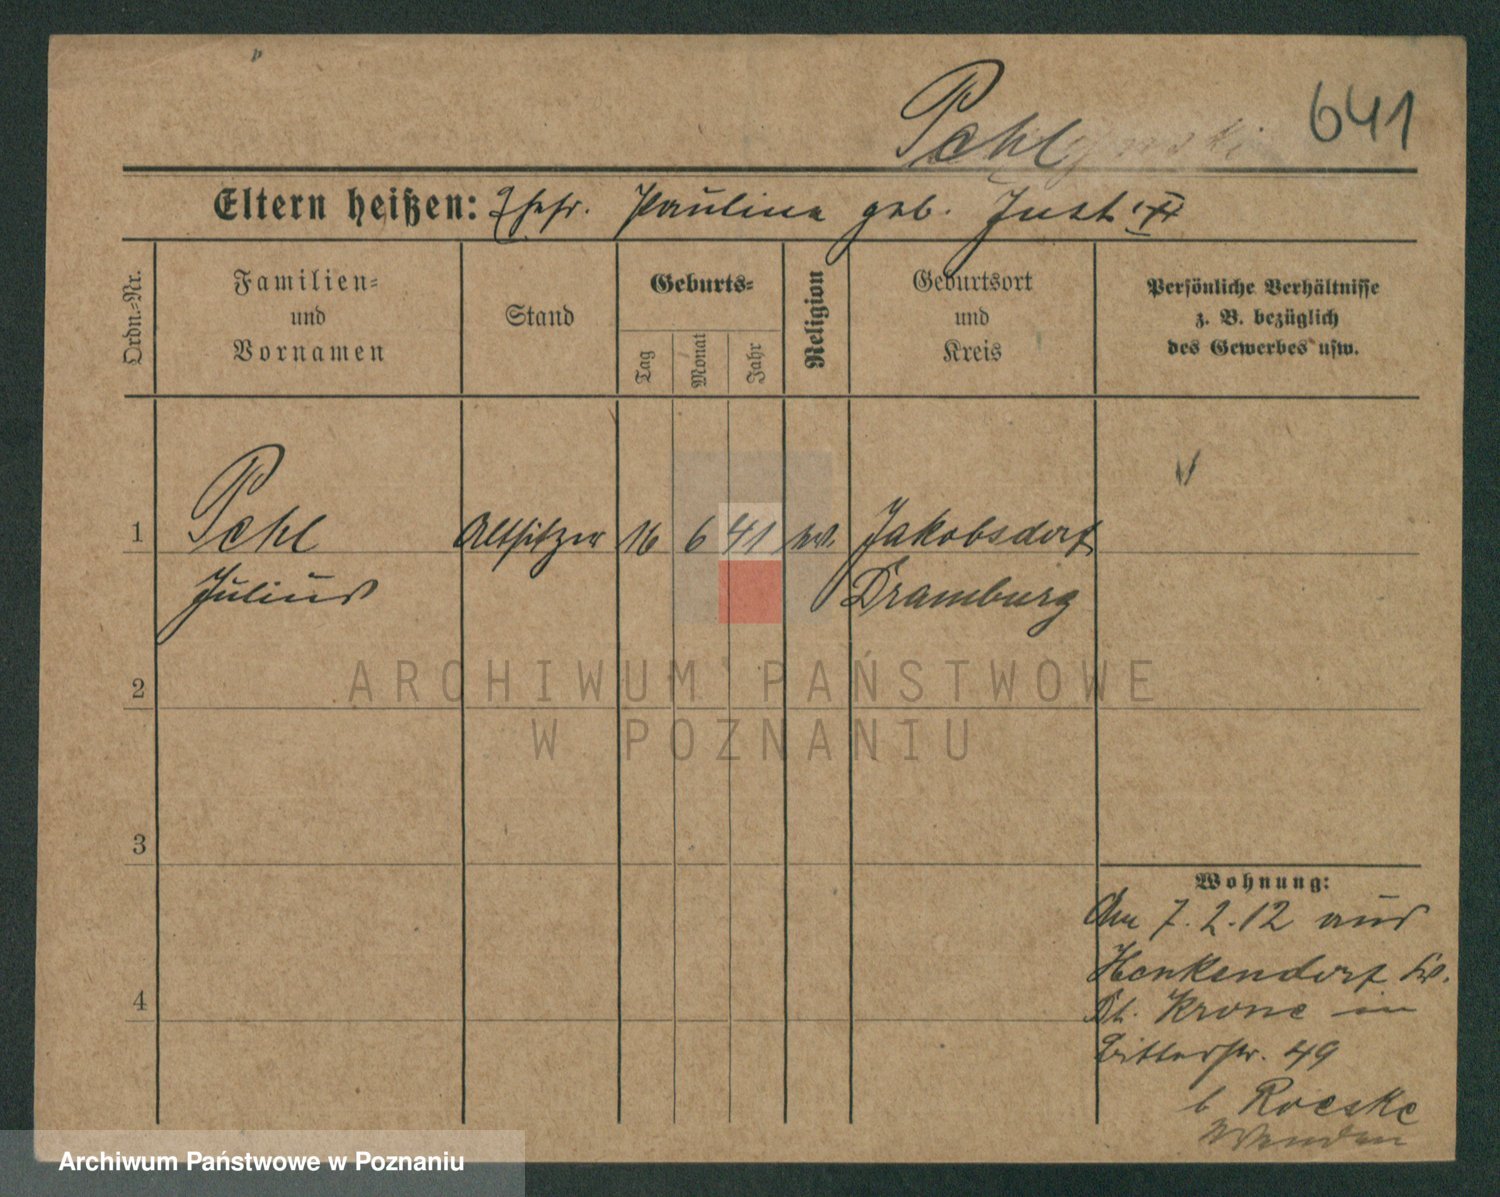 641
Pehl
Eltern heißen: Ehefr. Pauline geb. Just
Ordn.-Nr.
Familien-
und
Vornamen
Stand
Geburts-
Tag
Monat
Jahr
Religion
Geburtsort
und
Kreis
Persönliche Verhältnisse
z. B. bezüglich
des Gewerbes usw.
1 Pehl Altsitzer 16 6 41 ev. Jakobsdorf
Julius Dramburg
2
3
4
Wohnung:
Am 7.2.12 aus
Henkendorf Kr.
Dt. Krone in
49
b Roeske
ARCHIWUM PAŃSTWOWE
W POZNANIU
Archiwum Państwowe w Poznaniu